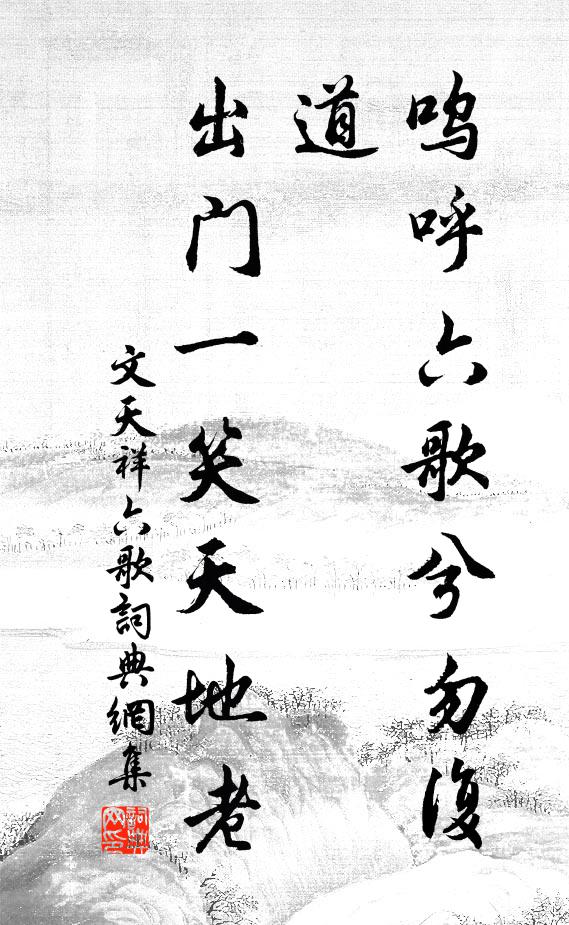 呜呼六歌兮勿復
道
出门一笑天地老
文天祥六歌詞典網集